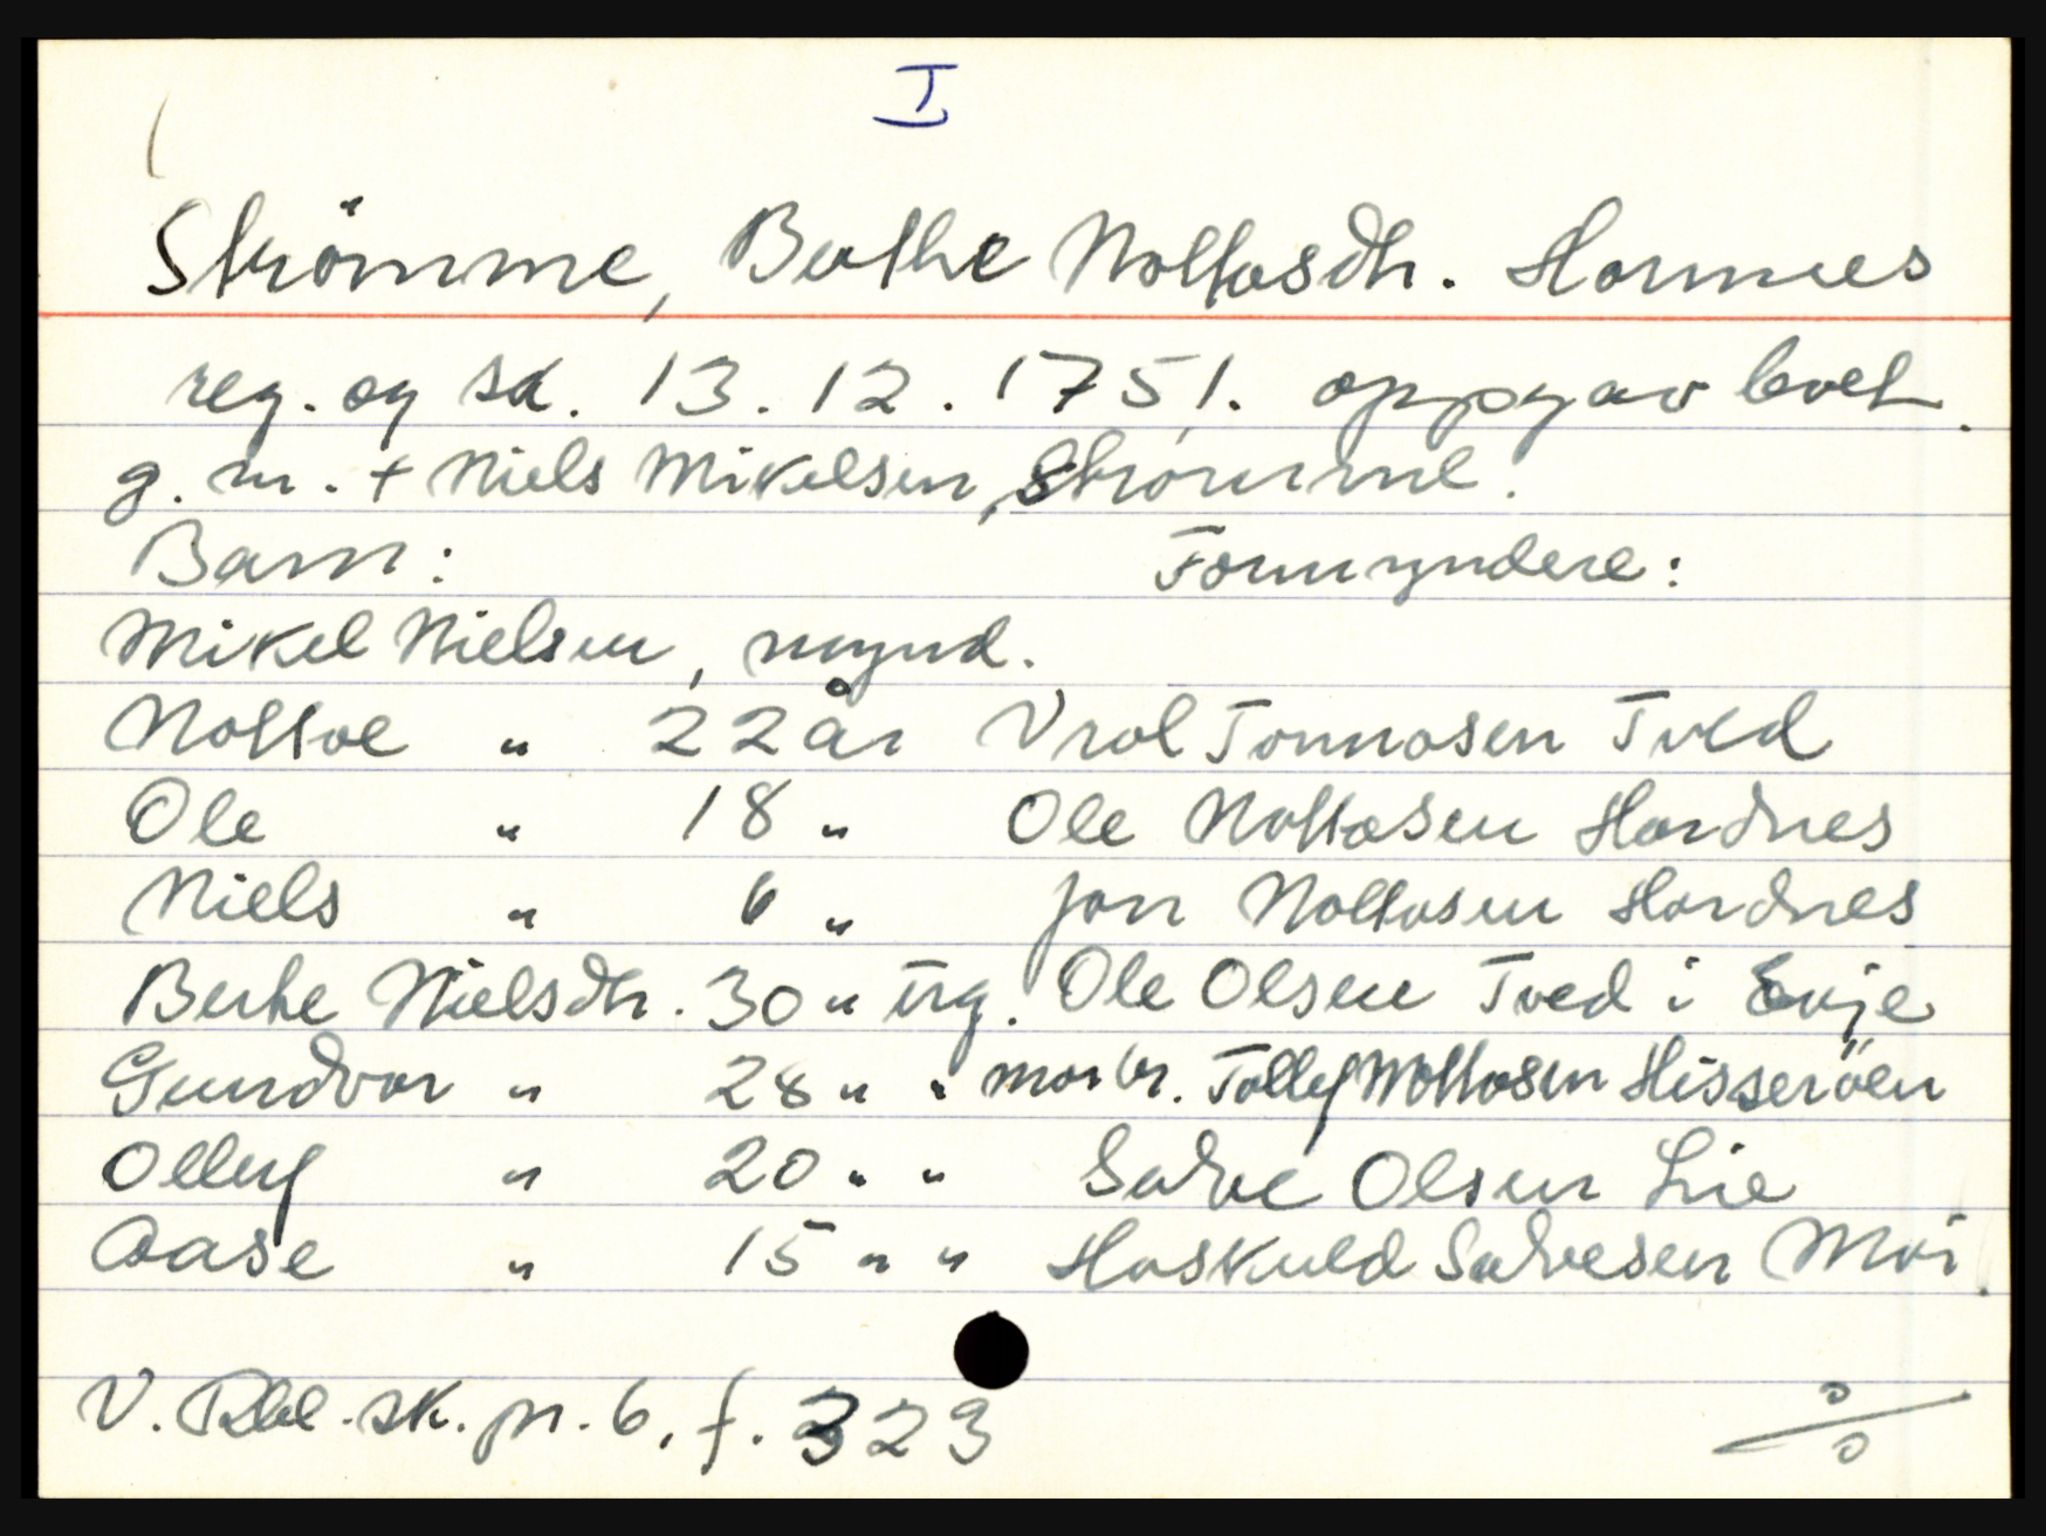 I
Strömme, Berthe Nottosdtr. Hornnes
reg. og sk. 13.12.1751. oppgav levet.
g.m. + Niels Mikelsen, Strömme.
Barn: Formyndere:
Mikel Nielsen, mynd.
Nottoe " 22 år Vrol Tomnosen Tved
Ole " 18 " Ole Nottosen Hordnes
Niels " 6 " Jon Nottosen Hordnes
Berhe Nielsdtr. 30 " ug. Ole Olsen Tved i Evje
Gundvor " 28 " " morbr. Tollef Nottosen Hisseröen
Ollug " 20 " " Salve Olsen Lie
Aase " 15 " " Hoskuld Salvesen Moi.
V. Rbl. sk. pr. 6, f. 323
0/0